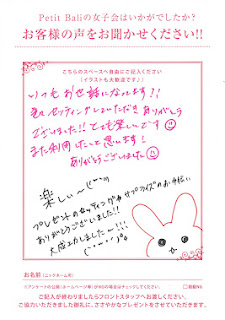 Petit Baliの女子会はいかがでしたか？
お客様の声をお聞かせください!!
こちらのスペースへ自由にご記入ください
（イラストも大歓迎です♪）
いつもお世話になります!!
セッティングしていただきありがとう
ございました!! とても楽しいです
また利用したいと思います!
ありがとうございました
楽しい〜
プレゼントのセッティングや サプライズのお手伝い
ありがとうございました!!
大成功しました〜!!!
お名前（ニックネーム可）
ご記入が終わりましたらフロントスタッフへお渡しください。
ご協力いただきました御礼に、ささやかなプレゼントをさせていただきます。